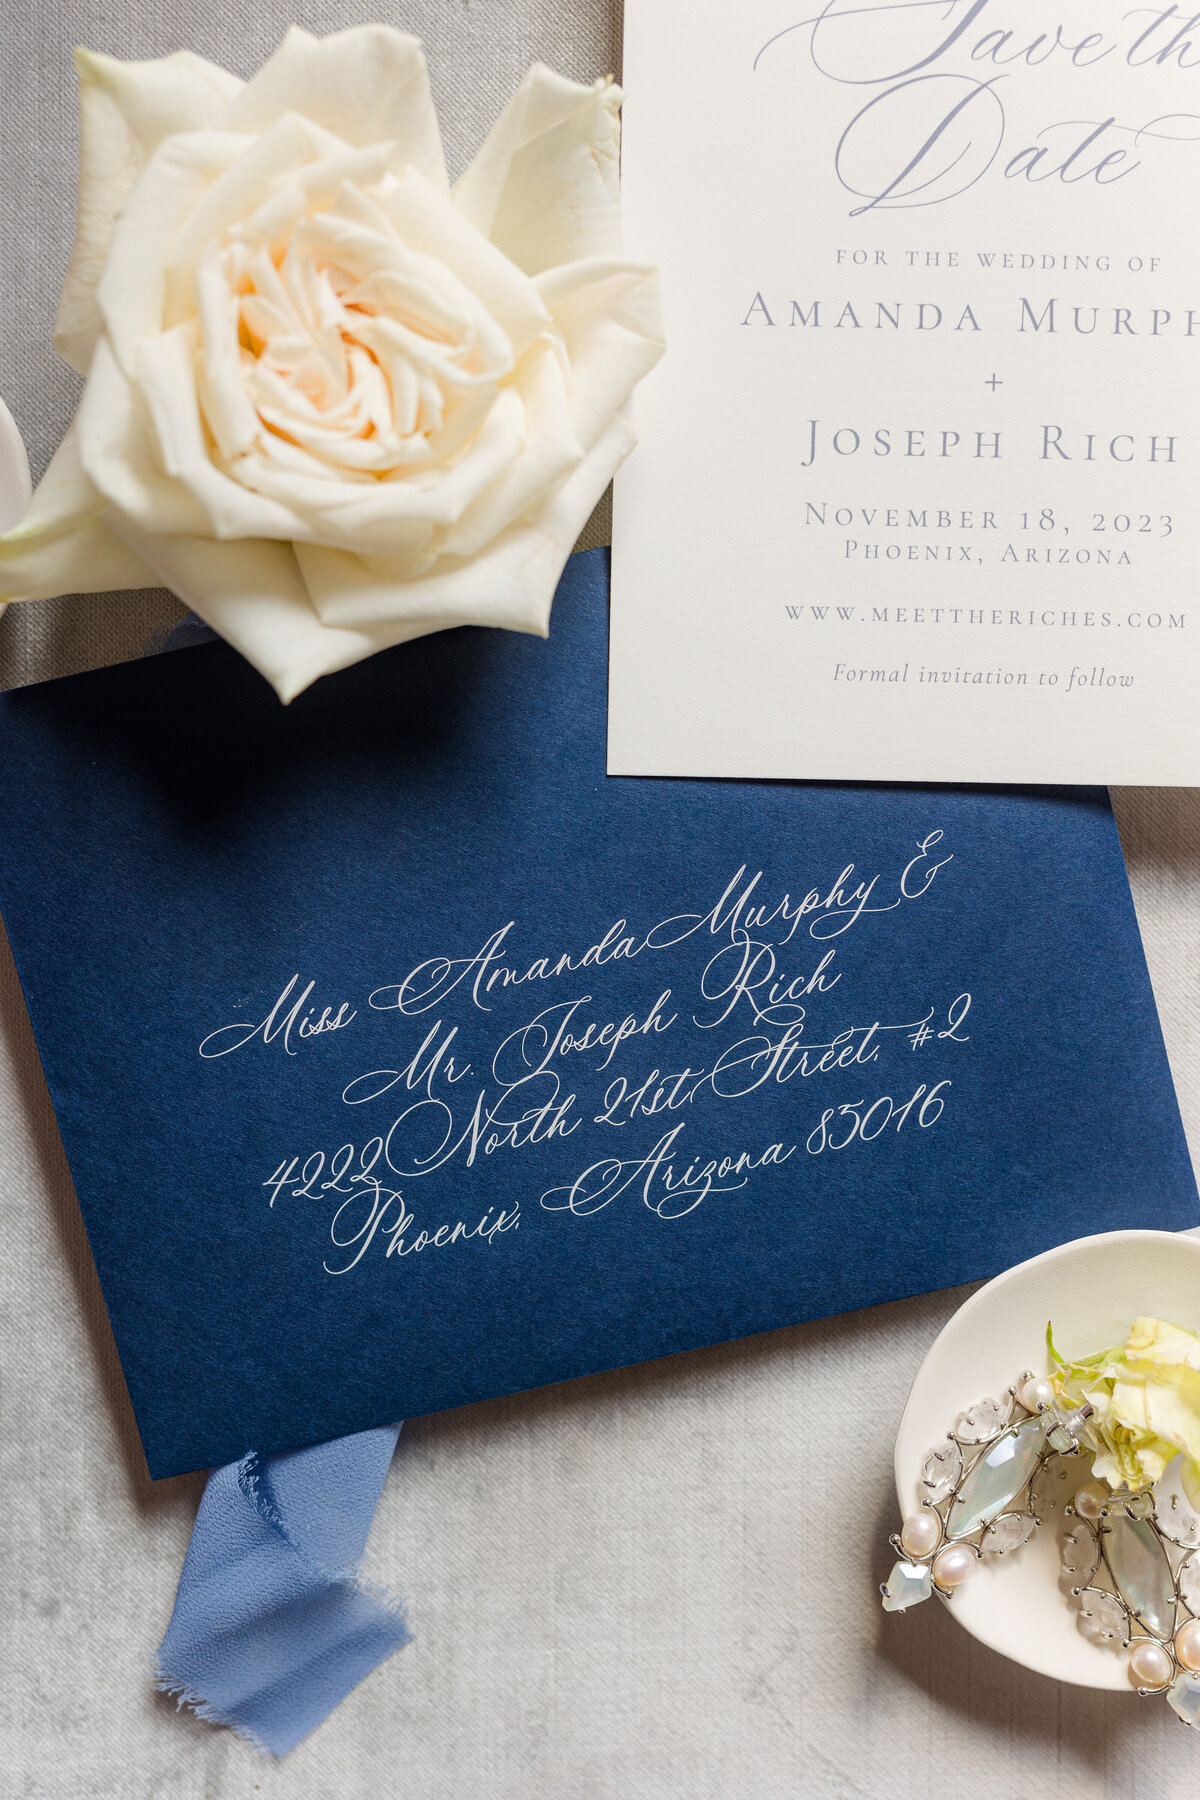 Save th
Date
FOR THE WEDDING OF
AMANDA MURPH
+
JOSEPH RICH
NOVEMBER 18, 2023
PHOENIX, ARIZONA
WWW.MEETTHERICHES.COM
Formal invitation to follow
Miss Amanda Murphy &
Mr. Joseph Rich
4222 North 21st Street, #2
Phoenix, Arizona 85016